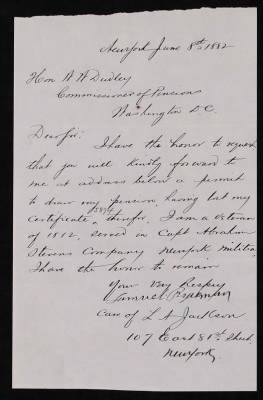 Newyork June 8th 1882
Hon W W Dudley
Commissioner of Pensions
Washington D.C.
Dear sir:
I have the honor to request
that you will kindly forward to
me at address below a permit
to draw my pension, having lost my
Certificate therefor. I am a veteran
of 1812, served in Capt Abraham
Stevens Company Newyork Militia,
I have the honor to remain
Your Very Respcy
Samuel
Care of L A Jackson
107 East 81st Street
Newyork